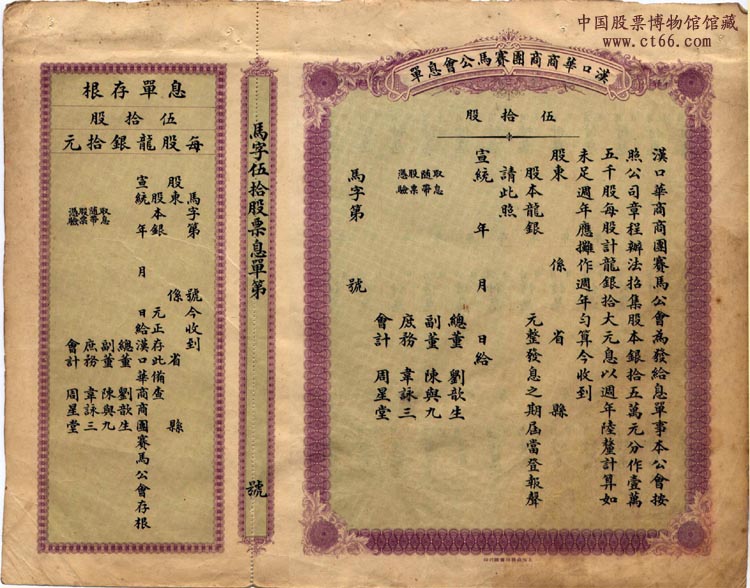 中国股票博物馆馆藏
www.ct66.com
漢口華商商團賽馬公會息單
伍拾股
漢口華商商團賽馬公會為發給息單事本公會按
照公司章程辦法招集股本銀拾五萬元分作壹萬
五千股每股計龍銀拾大元息以週年陸釐計算如
未足週年應攤作週年匀算今收到
股東 係 省 縣
股本龍銀 元整發息之期屆當登報聲
請此照
宣統 年 月 日給
總董 劉歆生
副董 陳與九
庶務 韋詠三
會計 周星堂
取息
隨帶
股票
憑驗
馬字第 號
馬字伍拾股票息單第 號
息單存根
伍拾股
每股龍銀拾元
馬字第 號今收到
股東 係 省 縣
股本銀 元正存此備查
宣統 年 月 日給漢口華商商團賽馬公會存根
總董 劉歆生
副董 陳與九
庶務 韋詠三
會計 周星堂
取息
隨帶
股票
憑驗